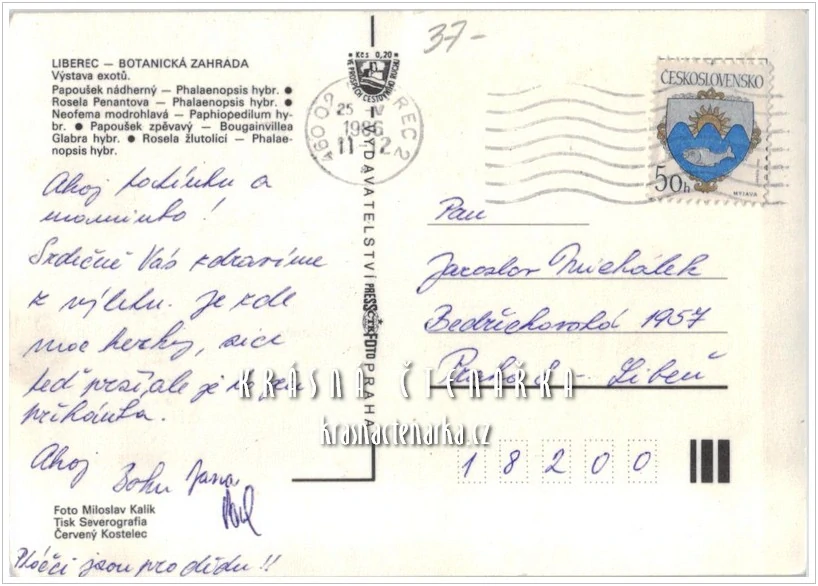 37-
LIBEREC — BOTANICKÁ ZAHRADA
Výstava exotů.
Papoušek nádherný — Phalaenopsis hybr. ●
Rosela Penantova — Phalaenopsis hybr. ●
Neofema modrohlavá — Paphiopedilum hy-
br. ● Papoušek zpěvavý — Bougainvillea
Glabra hybr. ● Rosela žlutolící — Phalae-
nopsis hybr.
Ahoj tatínku a
maminko!
Srdečně Vás zdravíme
z výletu. Je zde
moc hezky, sice
teď prší, ale je to jen
přeháňka.
Ahoj
Jana
Foto Miloslav Kalík
Tisk Severografia
Červený Kostelec
Ptáčci jsou pro dědu!!
Kčs 0,20
VE PROSPĚCH CESTOVNÍHO RUCHU
VYDAVATELSTVÍ PRESSFOTO PRAHA
460 02 LIBEREC 2
25 IV
1986
11-12
ČESKOSLOVENSKO
50h
MYJAVA
Pan
Jaroslav Michálek
Bedřichovská 1957
Praha 8 - Libeň
18200
KRÁSNÁ ČTENÁŘKA
krasnactenarka.cz